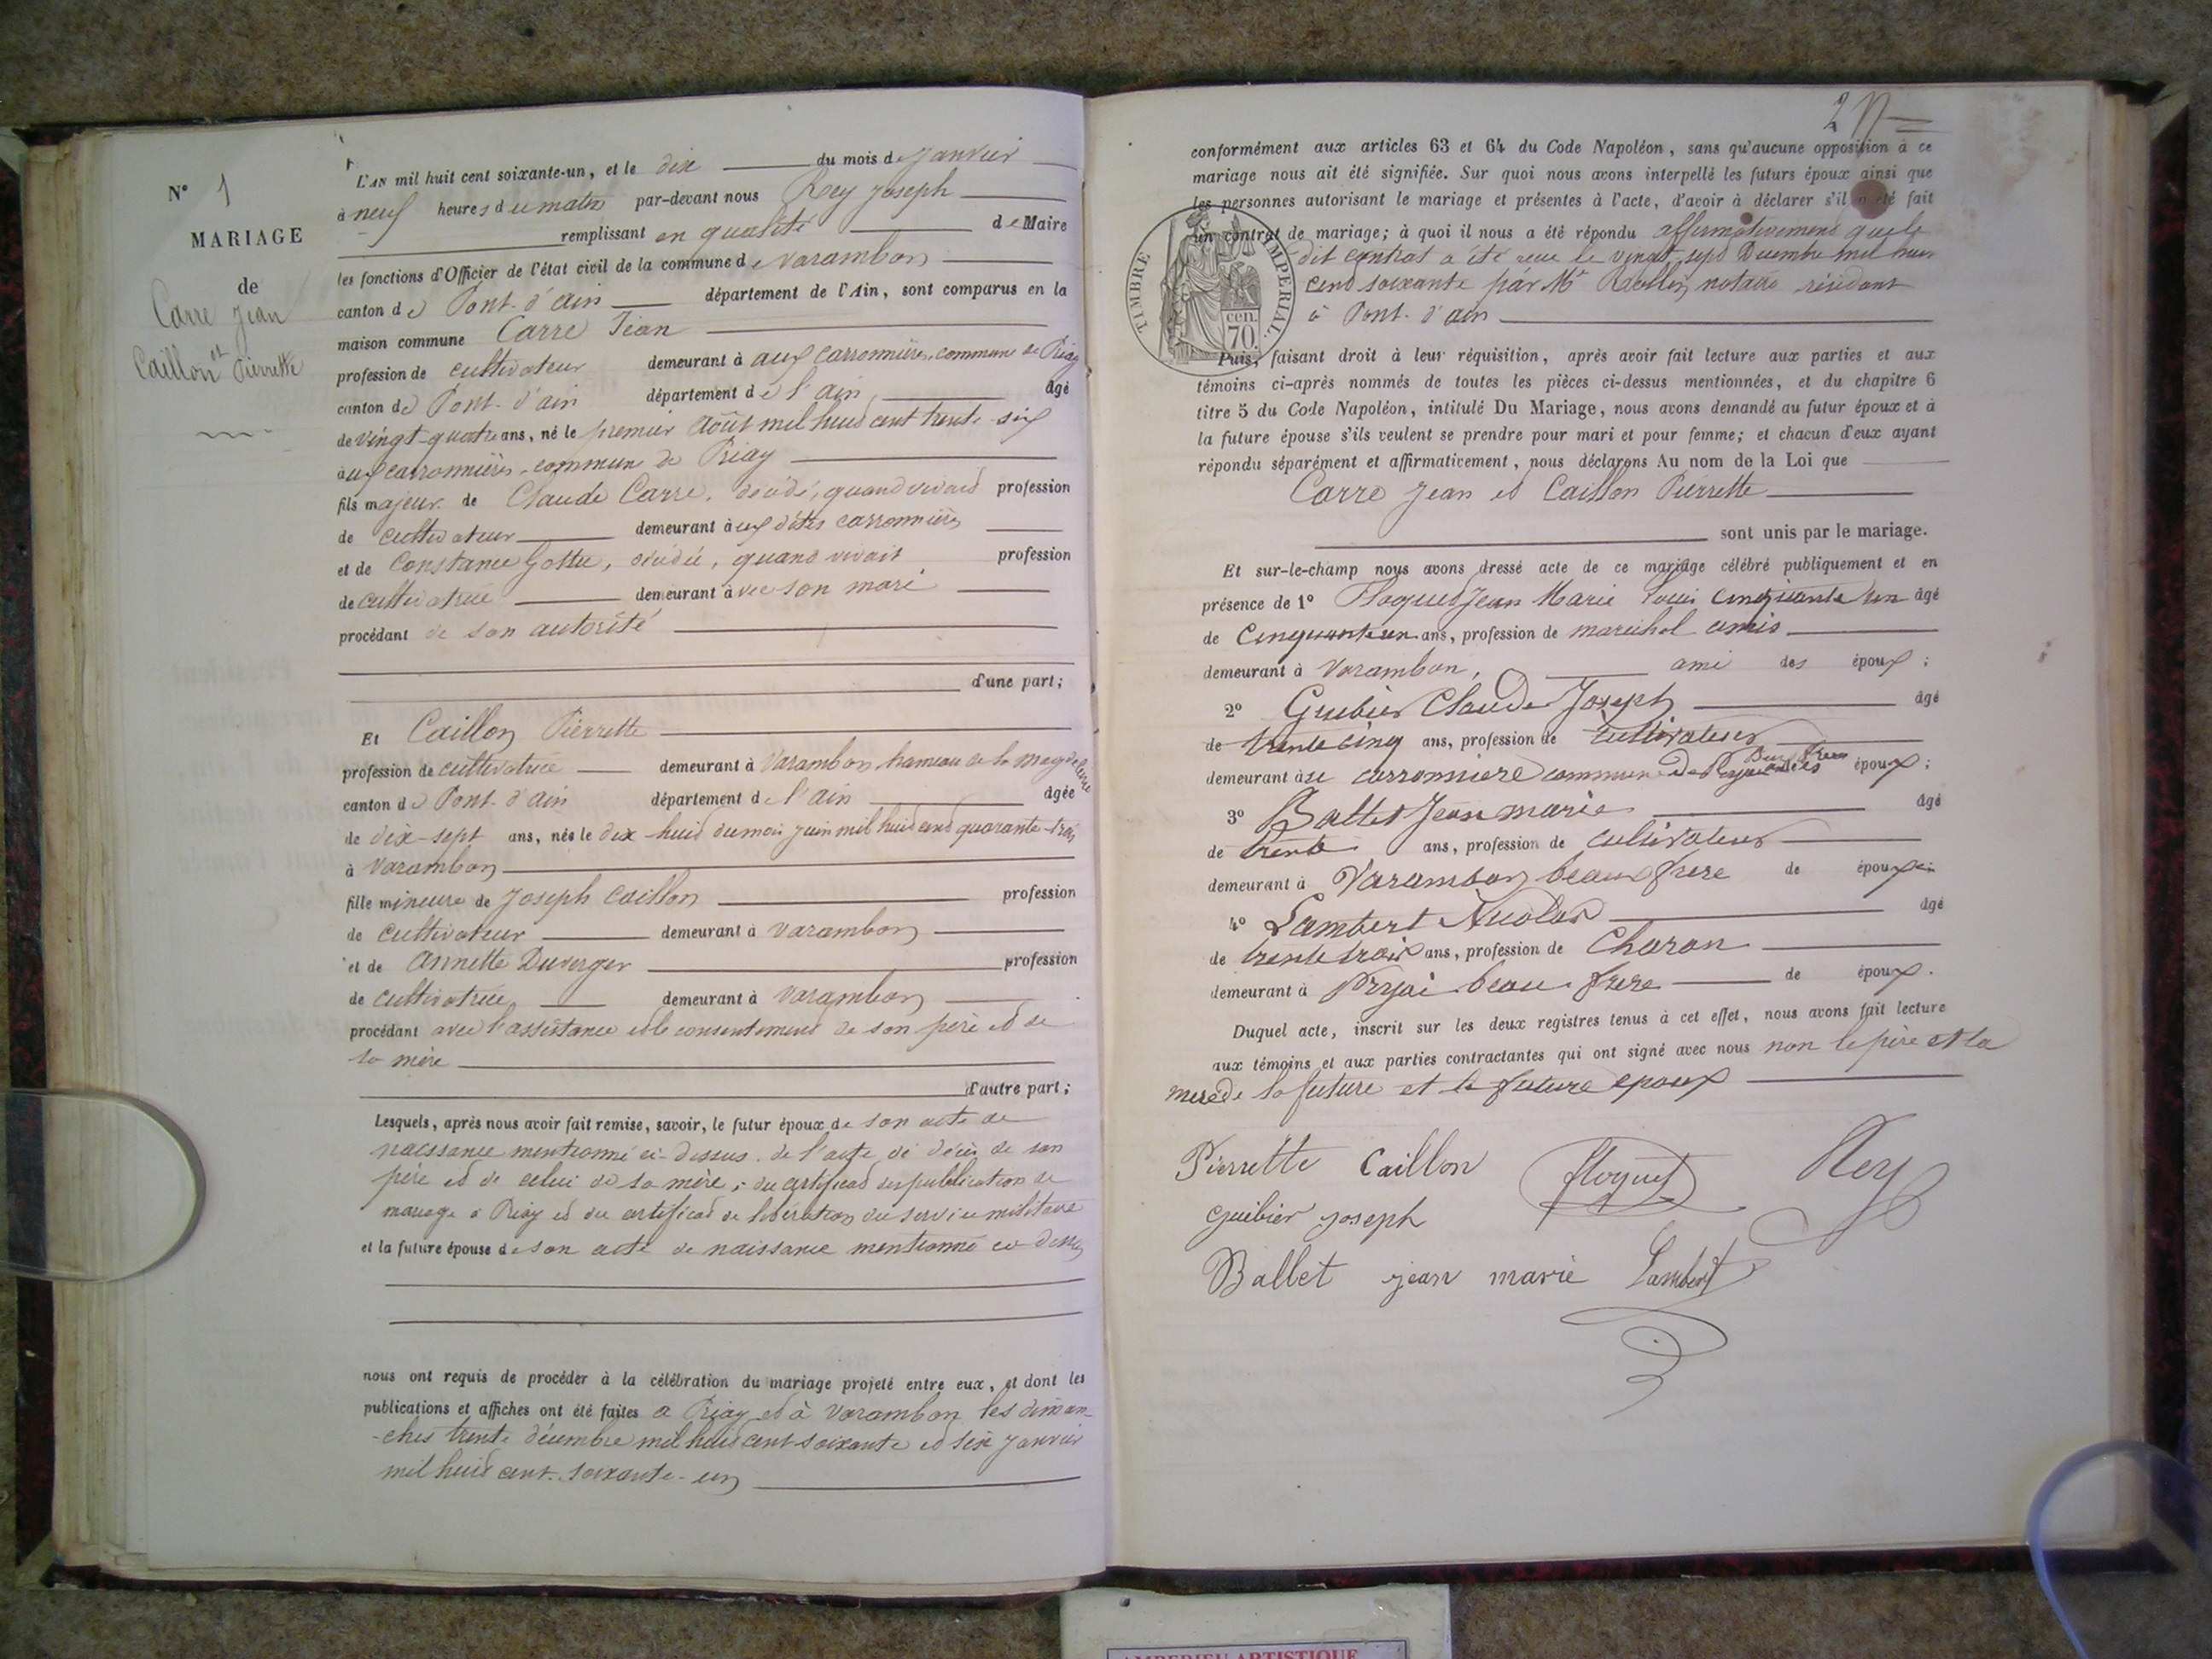 N° 1
MARIAGE
de
Carre Jean
et
Caillon Pierrette
L'AN mil huit cent soixante-un, et le dix du mois de Janvier
à neuf heures du matin par-devant nous Rey Joseph
remplissant en qualité de Maire
les fonctions d'Officier de l'état civil de la commune de Varambon
canton de Pont-d'ain département de l'Ain, sont comparus en la
maison commune Carre Jean
profession de cultivateur demeurant à aux carronnières, commune de Priay
canton de Pont-d'ain département de l'ain âgé
de vingt-quatre ans, né le premier Août mil huit cent trente-six
aux carronnières, commune de Priay
fils majeur de Claude Carre, décédé, quand vivait profession
de cultivateur demeurant aux dites carronnières
et de Constance Gottu, décédée, quand vivait profession
de cultivatrice demeurant avec son mari
procédant de son autorité
d'une part;
Et Caillon Pierrette
profession de cultivatrice demeurant à Varambon hameau de la magdeleine
canton de Pont-d'ain département de l'ain âgée
de dix-sept ans, née le dix-huit du mois juin mil huit cent quarante-trois
à Varambon
fille mineure de Joseph Caillon profession
de cultivateur demeurant à Varambon
et de Annette Duverger profession
de cultivatrice, demeurant à Varambon
procédant avec l'assistance et le consentement de son père et de
sa mère
d'autre part;
Lesquels, après nous avoir fait remise, savoir, le futur époux de son acte de
naissance mentionné ci-dessus, de l'acte de décès de son
père et de celui de sa mère; du certificat des publication de
mariage à Priay et du certificat de libération du service militaire
et la future épouse de son acte de naissance mentionné ci-dessus
nous ont requis de procéder à la célébration du mariage projeté entre eux, et dont les
publications et affiches ont été faites à Priay et à Varambon les diman-
-ches trente décembre mil huit cent soixante et six Janvier
mil huit cent-soixante-un
2
conformément aux articles 63 et 64 du Code Napoléon, sans qu'aucune opposition à ce
mariage nous ait été signifiée. Sur quoi nous avons interpellé les futurs époux ainsi que
les personnes autorisant le mariage et présentes à l'acte, d'avoir à déclarer s'il a été fait
un contrat de mariage; à quoi il nous a été répondu affirmativement que le
dit contrat a été reçu le vingt sept Décembre mil huit
cent soixante par Me notaire résidant
à Pont-d'ain
TIMBRE IMPERIAL.
cen.
70.
Puis, faisant droit à leur réquisition, après avoir fait lecture aux parties et aux
témoins ci-après nommés de toutes les pièces ci-dessus mentionnées, et du chapitre 6
titre 5 du Code Napoléon, intitulé Du Mariage, nous avons demandé au futur époux et à
la future épouse s'ils veulent se prendre pour mari et pour femme; et chacun d'eux ayant
répondu séparément et affirmativement, nous déclarons Au nom de la Loi que
Carre Jean et Caillon Pierrette
sont unis par le mariage.
Et sur-le-champ nous avons dressé acte de ce mariage célébré publiquement et en
présence de 1° Floquet Jean Marie Louis cinquante un âgé
de Cinquante un ans, profession de maréchal
demeurant à Varambon, ami des époux;
2° Guibier Claude Joseph âgé
de trente cinq ans, profession de cultivateur
demeurant à la carronniere commune de époux;
3° Ballet Jean marie âgé
de trente ans, profession de cultivateur
demeurant à Varambon beau frere de époux
4° Lambert Nicolas âgé
de trente trois ans, profession de Charon
demeurant à Pryai beau frere de époux.
Duquel acte, inscrit sur les deux registres tenus à cet effet, nous avons fait lecture
aux témoins et aux parties contractantes qui ont signé avec nous non le père et la
mere de la future et le future epoux
Pierrette Caillon floquet Rey
guibier joseph
Ballet jean marie Lambert
AMBERIEU ARTISTIQUE